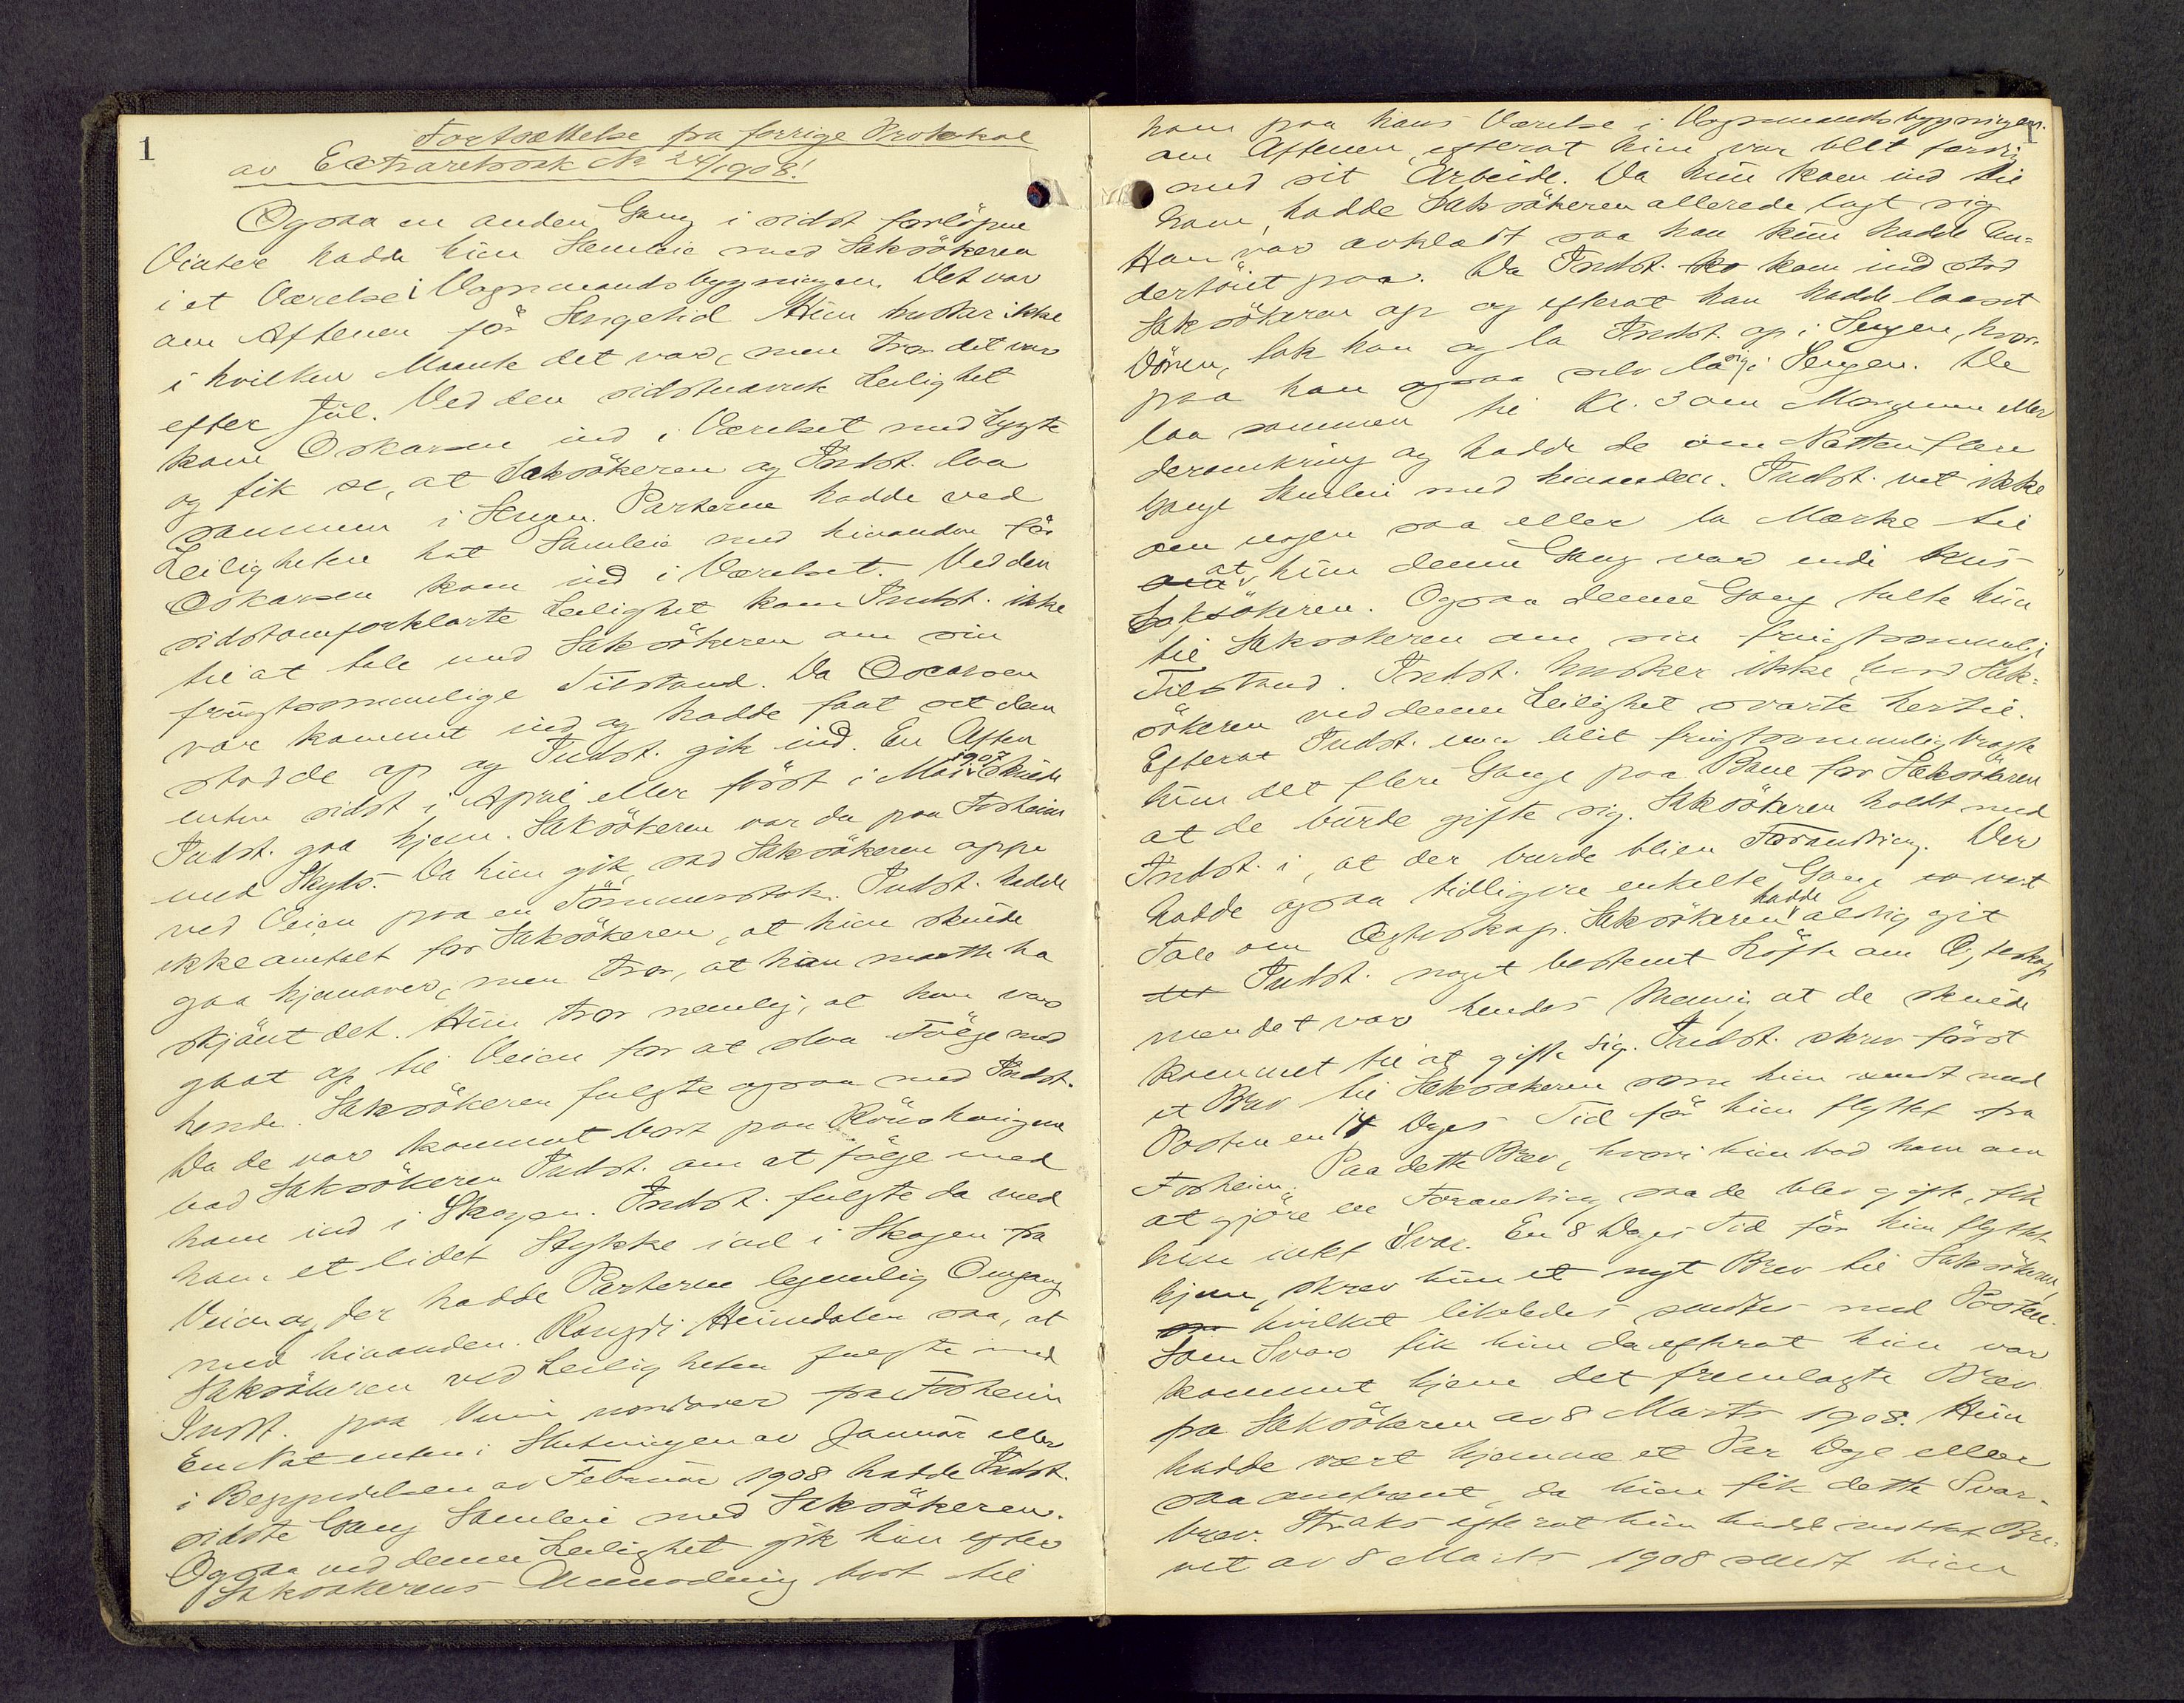 1
Fortsættelse fra forrige Protokol
av Extraretssak No 24/1908!
Ogsaa en anden Gang i sidst forløpne
Vinter hadde hun Samleie med Saksökeren
i et Værelse i Vognmandsbygningen. Det var
om Aftenen för Sengetid. Hun husker ikke
i hvilken Maaned det var, men tror det var
efter Jul. Ved den sidstnævnte Leilighet
kom Oskarsen ind i Værelset med Lygte
og fik se, at Saksökeren og Indst. laa
sammen i Sengen. Parterne hadde ved
Leiligheten hat Samleie med hinanden för
Oskarsen kom ind i Værelset. Ved den
sidstomforklarte Leilighet kom Indst. ikke
til at tale med Saksökeren om sin
frugtsommelige Tilstand. Da Oscarsen
var kommet ind og hadde faat set dem
stod de op og Indst. gik ind. En Aften
enten sidst i April eller först i Mai 1907 skulde
Indst. gaa hjem. Saksökeren var da paa Forheim
med Skyds. Da hun gik, sad Saksökeren oppe
ved Veien paa en Tömmerstok. Indst. hadde
ikke omtalt for Saksökeren, at hun skulde
gaa hjemover, men tror, at han maatte ha
skjönt det. Hun tror nemlig, at han var
gaat op til Veien for at slaa Fölge med
hende. Saksökeren fulgte ogsaa med Indst.
Da de var kommet bort paa
bad Saksökeren Indst. om at fölge med
ham ind i Skogen. Indst. fulgte da med
ham et lidet Stykke ind i Skogen fra
Veien og der hadde Parterne legemlig Omgang
med hinanden. Heimdalen saa, at
Saksökeren ved Leiligheten fulgte med
Indst. paa Veien nordover fra Forheim
En Nat enten i Slutningen av Januar eller
i Begyndelsen av Februar 1908 hadde Indst.
sidste Gang Samleie med Saksökeren.
Ogsaa ved denne Leilighet gik hun efter
Saksökerens Anmodning bort til
1
ham paa hans Værelse i Vognmandsbygningen.
om Aftenen, efterat hun var blit færdig
med sit Arbeide. Da hun kom ind til
ham, hadde Saksökeren allerede lagt sig
Han var avklædt saa han kun hadde Un-
dertöiet paa. Da Indst. ko kom ind stod
Saksökeren op og efterat han hadde laaset
Dören, tok han og la Indst. op i Sengen, hvor-
paa han ogsaa selv la sig i Sengen. De
laa sammen til Kl. 3 om Morgenen eller
deromkring og hadde de om Natten flere
Gange Samleie med hinanden. Indst. vet ikke
om nogen saa eller la Mærke til
om at hun denne Gang var inde hos
Saksökeren. Ogsaa denne Gang talte hun
til Saksökeren om sin frugtsommelige
Tilstand. Indst. husker ikke, hvad Sak-
sökeren ved denne Leilighet svarte hertil.
Efterat Indst. var blit frugtsommelig bragte
hun det flere Gange paa Bane for Saksökeren
at de burde gifte sig. Saksökeren holdt med
Indst. i, at der burde blien Forandring. Der
hadde ogsaa tidligere enkelte Gange vært
Tale om Ægteskap. Saksökeren hadde aldrig git
Indst. noget bestemt Löfte om Ægteskap
men det var hendes Mening at de skulde
kommet til at gifte sig. Indst. skrev först
et Brev til Saksökeren som hun sendt med
Posten en 14 Dages Tid för hun flyttet fra
Forheim. Paa dette Brev, hvori hun bad ham om
at gjöre en Forandring saa de blev gifte, fik
hun intet Svar. En 8 Dages Tid för hun flyttet
hjem, skrev hun et nyt Brev til Saksökeren,
hvilket likeledes sendtes med Posten.
Som Svar fik hun da efterat hun var
kommet hjem det fremlagte Brev
fra Saksökeren av 8 Marts 1908. Hun
hadde vært hjemme et Par Dage eller
saa omtrent, da hun fik dette Svar-
brev. Straks efterat hun hadde mottat Bre-
vet av 8 Marts 1908 sendt hun